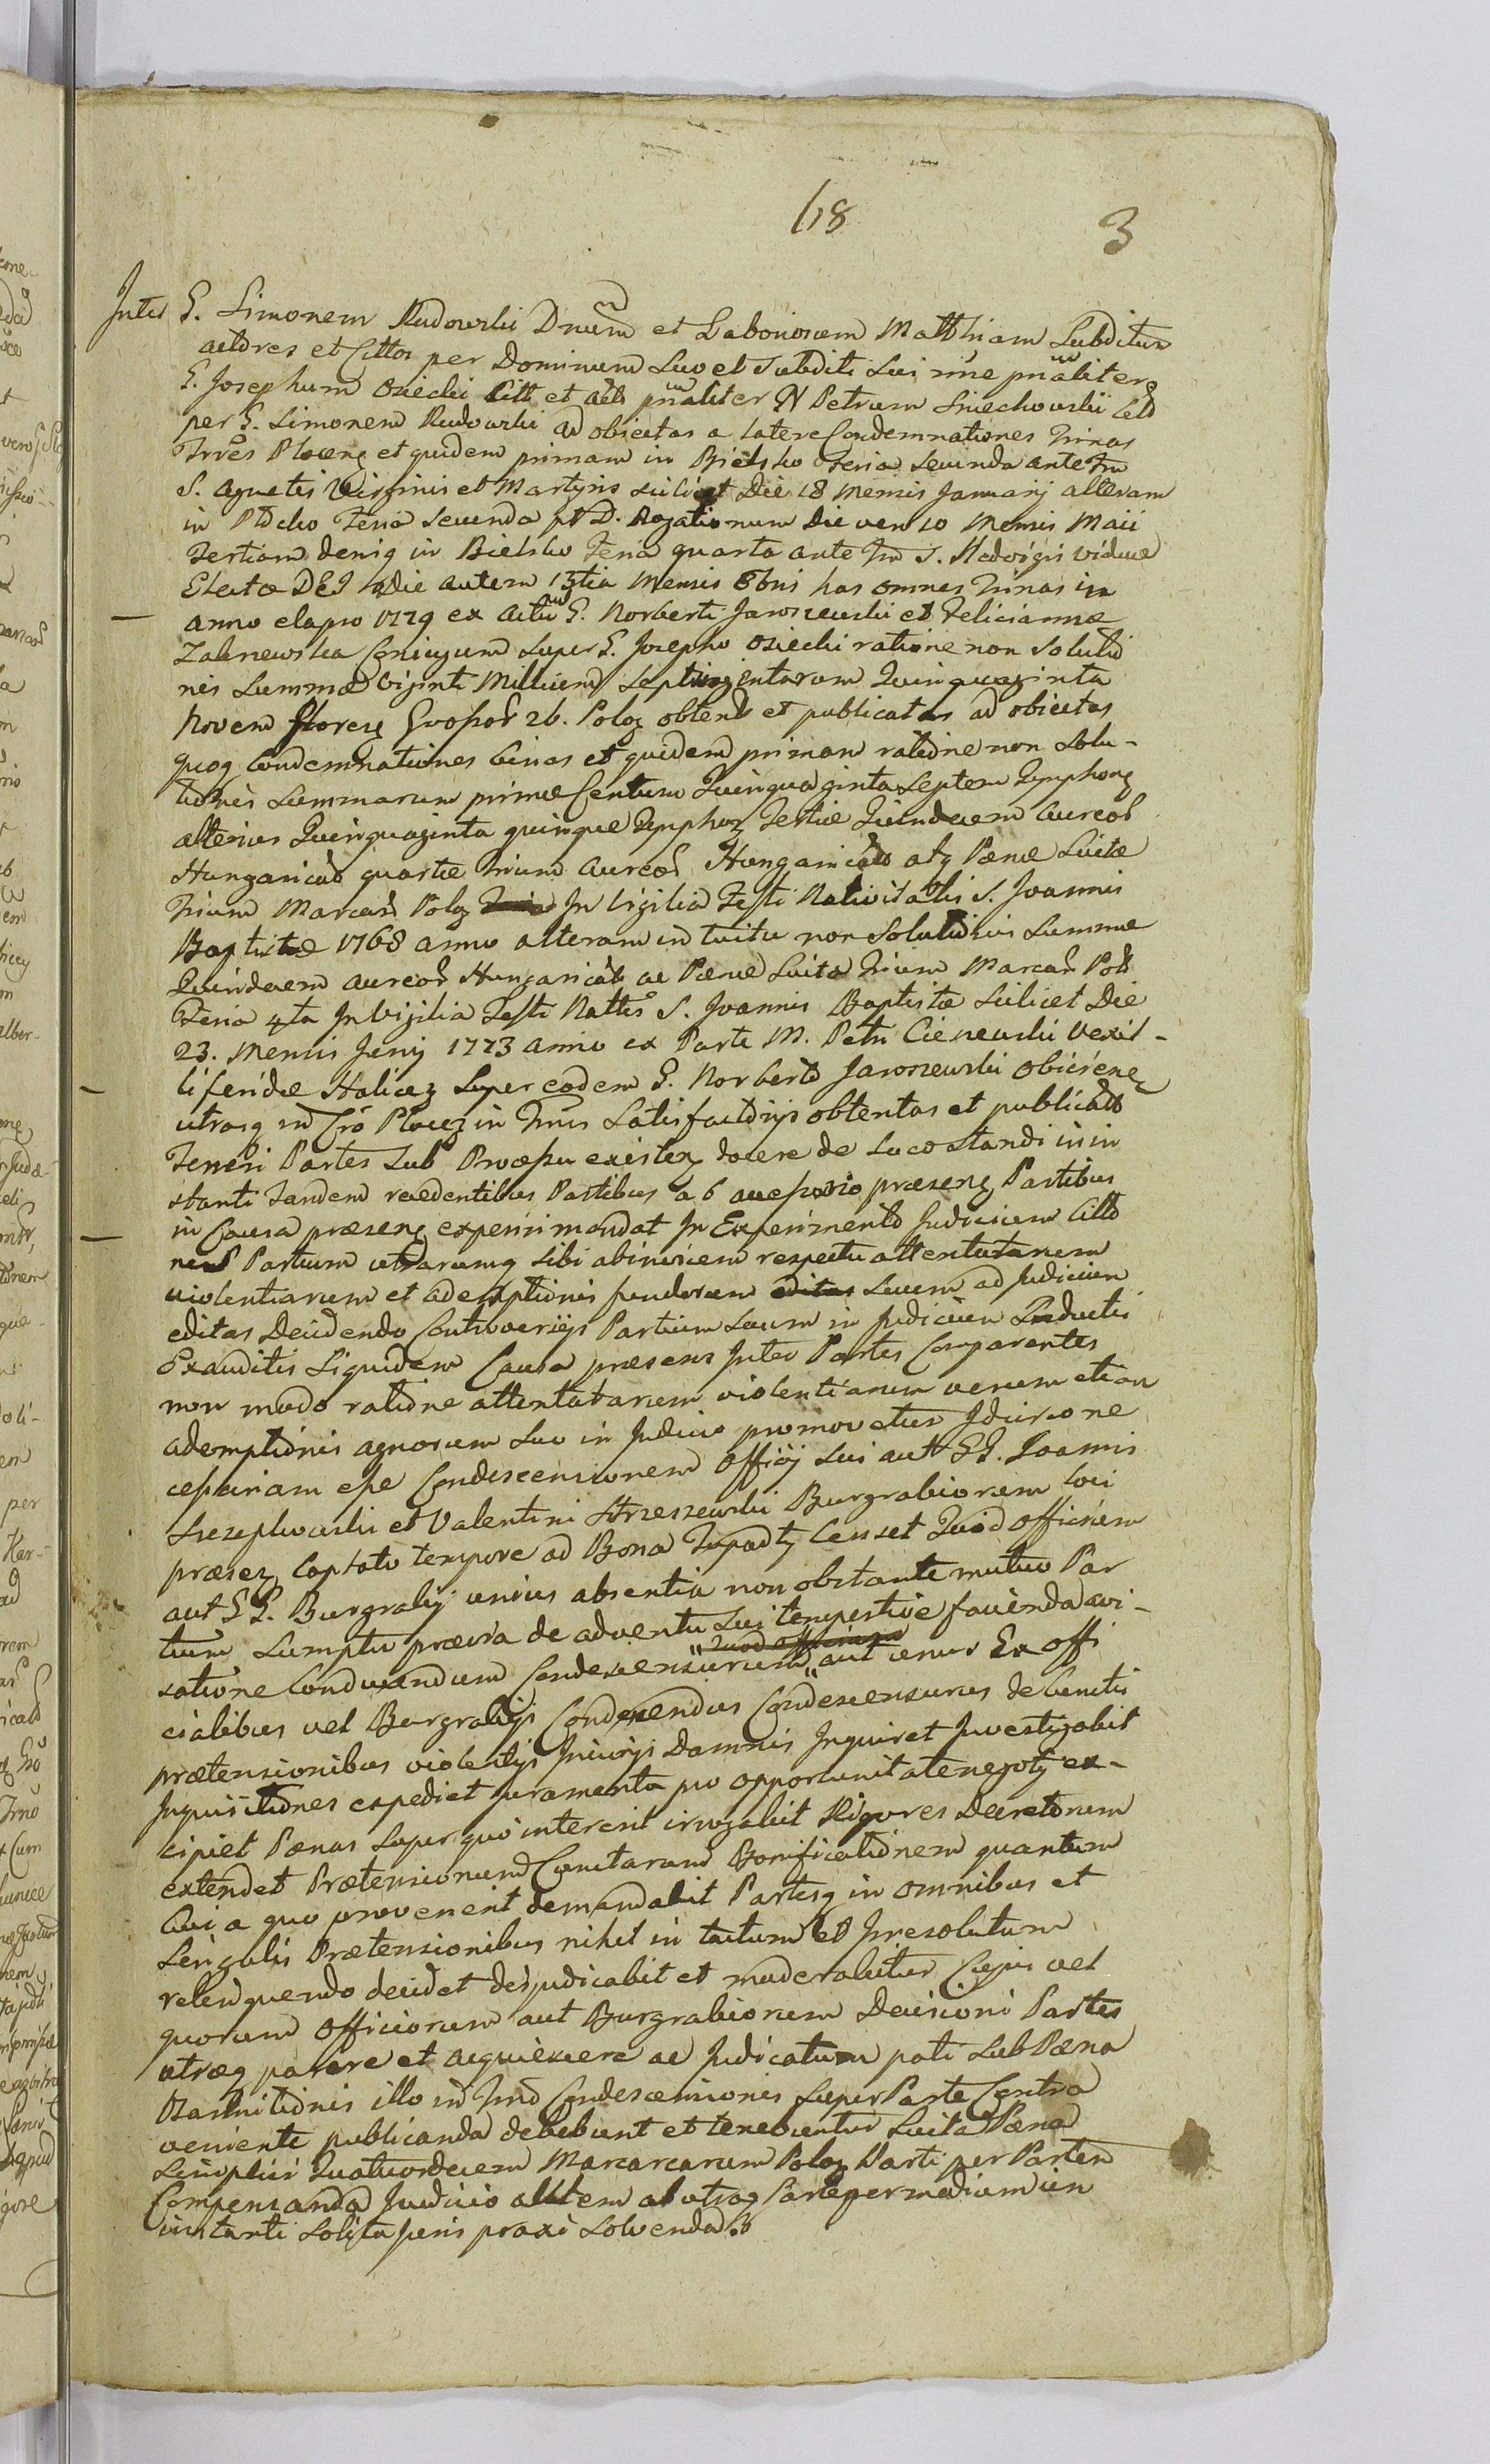 618
3
Inter G. Simonem Rudowski Dnum et Laboriosum Matthiam Subditum
actores et Cittos per Dominum Suo et Subditi Sui nne pnaliter
G. Josephum Osiecki Citt et act pnaliter N Petrum Sniechowski Citt
per G. Simonem Rudowski ad obiectas a latere Condemnationes Trinas
Trres Plocens et quidem primam in Bielsko Feria Secunda ante Fm
S. Agnetis Virginis et Martyris scilicet Die 18 Mensis Januarij alteram
in Plocko Feria Secunda pt D. Rogationum Die vero 10 Mensis Maii
Tertiam deniq in Bielsko Feria quarta ante Fm S. Hedvigis Viduae
Electae DEI Die autem 13tia Mensis 8bris has omnes Trinas in
anno elapso 1779 ex actu G. Norberti Jaroszewski et Felicianna
Zalinewska Coniugum Super G. Josepho Osiecki ratione non Solutio
nis Summae Viginti Millium Septingentorum Quinquaginta
Novem floreng Grossor 26. Polog obtent et publicatas ad obiectas
quoq Condemnationes binas et quidem primam ratione non Solu-
tionis Summarum primae Centum Quinquaginta Septem Tymphong
alterius Quinquaginta quinque Tymphog Tertiae Quindecem Aureor
Hungaricalt quartae Trium Aureor Hungaricalt atq Paenae Luitae
Trium Marcar Polog In Vigilia Festi Nativitatis S. Joannis
Baptistae 1768 anno alteram in tuitu non Solutionis Summae
Quindecem aureor Hungarical ac Paenae Luitae Trium Marcar Pol
Feria 4ta In Vigilia Festi Nattis S. Joannis Baptistae Scilicet Die
23. Mensis Junij 1773 anno ex Parte M. Petri Cieniewski Vexil-
liferidae Halicz Super eodem G. Norberto Jaroszewski Obiicieng
utrasq in Cro Plocens in Trnis Satisfactorijs obtentas et publicatas
Teneri Partes Sub Processu existeng docere de Loco standi in in
stanti Tandem recedentibus Partibus ab accessorio praeseng Partibus
in Causa praeseng experiri mandat In Experimento Judicium Citto
nes Partium utrarumq sibi abinvicem respectu attentatarum
violentiarum et ademptionis fundorum editas Suum ad Judicium
editas Decidendo Controversijs Partium Suum in Judicium Inductis
Exauditis Siquidem Causa praesens Inter Partes Comparentes
non modo ratione attentatarum violentiarum verum etiam
ademptionis agnorum Suo in Judicio promovetur Idcirco ne
cessariam esse Condescensionem Officij Sui aut GG. Joannis
Szczepkowski et Valentini Strzeszewski Burgrabiorum loci
praeseg Captato tempore ad Bona Tupadły Censet Quod officium
aut GG. Burgrabij unius absentia non obstante mutuo Par
tium Sumptu praevia de adventu Sui tempestive facienda avi-
satione Conducendum Condescensurum aut unus Ex offi
quod officium
cialibus vel Burgrabijs Conducendus Condescensurus de Cunctis
praetensionibus violentijs Iniurijs Damnis Inquiret Investigabit
Inquisitiones expediet juramenta pro opportunitate negotij ex-
cipiet Paenas Super quo intererit irrogabit Rigores Decretorum
extendet Praetensionum Cunctarum Bonificationem quantum
Cui a quo provenerit demandabit Partesq in Omnibus et
Singulis Praetensionibus nihil in tactum et Irresolutum
relinquendo decidet dejudicabit et moderabitur Cujus vel
quorum Officiorum aut Burgrabiorum Decisioni Partes
utraeq parere et acquiescere ac Judicatum pati Sub Paena
Bannitionis illo in Trno Condescensionis Super Parte Contra
veniente publicanda debebunt et tenebuntur Luita Paena
Simplici Quatuordecem Marcarum Polog Parti per Partem
Compensanda Judicio alttem ab utraq Parte per medium in
instanti Solita juris praxi Solvenda